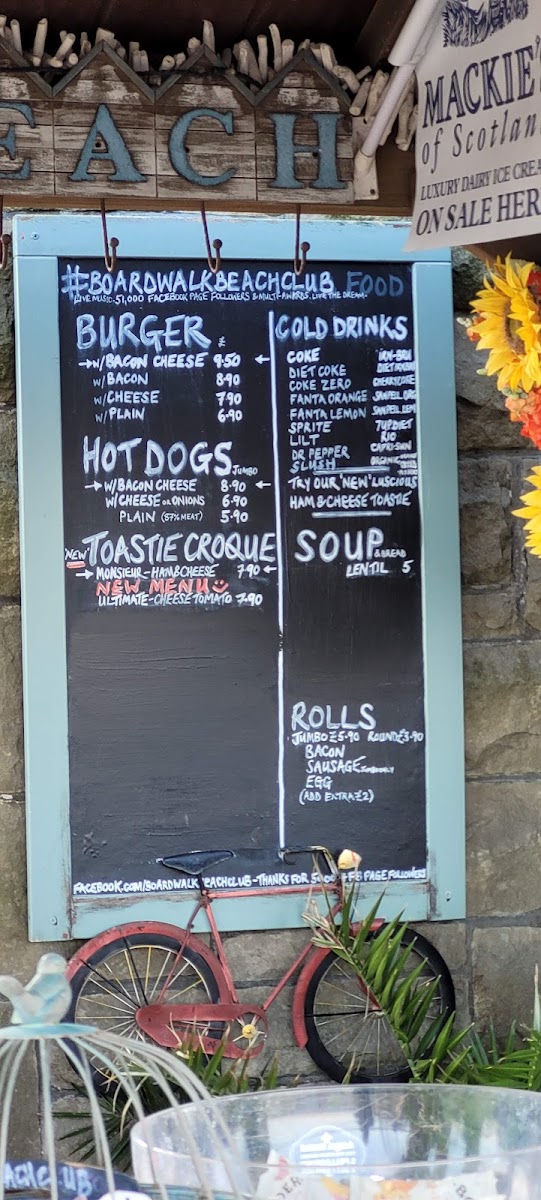 EACH
MACKIE'S
of Scotland
LUXURY DAIRY ICE CREA
ON SALE HER
#BOARDWALKBEACHCLUB FOOD
LIVE MUSIC. 51,000 FACEBOOK PAGE FOLLOWERS & MULTI-AWARDS. LIVE THE DREAM.
BURGER £
W/BACON CHEESE 9.50
W/BACON 8.90
W/CHEESE 7.90
W/PLAIN 6.90
HOT DOGS JUMBO
W/BACON CHEESE 8.90
W/CHEESE OR ONIONS 6.90
PLAIN (57% MEAT) 5.90
NEW TOASTIE CROQUE
MONSIEUR-HAM&CHEESE 7.90
NEW MENU
ULTIMATE-CHEESE TOMATO 7.90
COLD DRINKS
COKE IRN-BRU
DIET COKE
COKE ZERO
FANTA ORANGE
FANTA LEMON
SPRITE 7UP DIET
LILT RIO
DR PEPPER CAPRI-SUN
SLUSH
TRY OUR 'NEW' LUSCIOUS
HAM & CHEESE TOASTIE
SOUP & BREAD
LENTIL 5
ROLLS
JUMBO £5.90 ROUND £3.90
BACON
SAUSAGE
EGG
(ADD EXTRA £2)
FACEBOOK.COM/BOARDWALK EACHCLUB-THANKS FOR FB PAGE FOLLOWERS
EACH CLUB